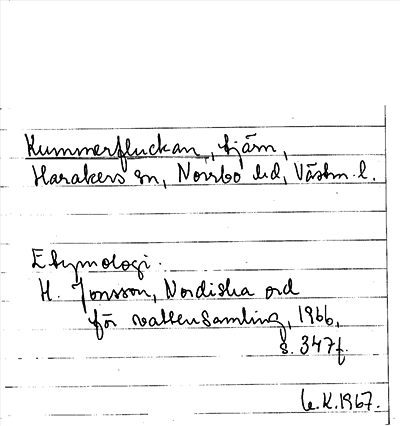 Kummerfluckan, tjärn,
Harakers sn, Norrbo hd, Västm. l.
Etymologi.
H. Jonsson, Nordiska ord
för vattensamling, 1966,
s. 347f.
K. 1967.